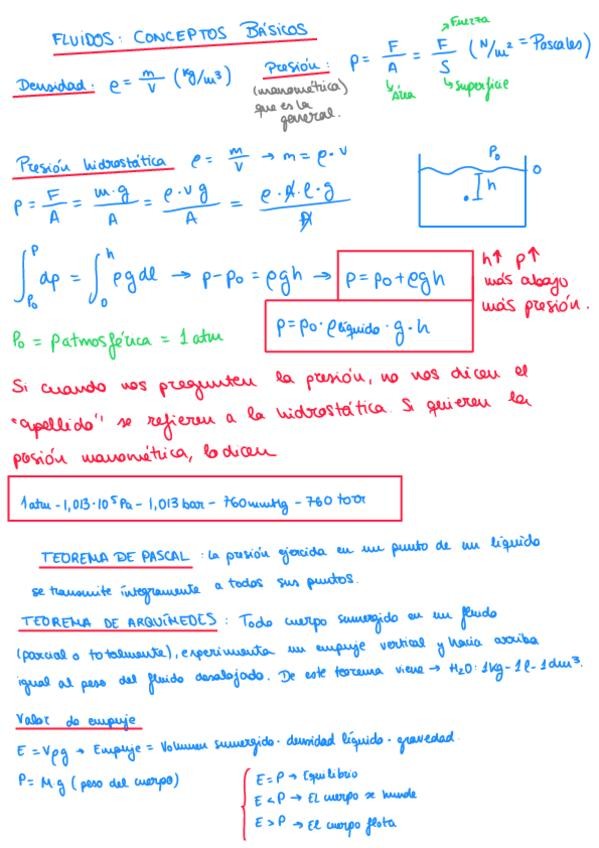 FLUIDOS: CONCEPTOS BÁSICOS
Densidad: ρ = m/V (kg/m³)
Presión: P = F/A = F/S (N/m² = Pascales)
Fuerza
Área
superficie
(manométrica)
que es la
general.
Presión hidrostática ρ = m/V → m = ρ·v
P = F/A = m·g/A = ρ·v g/A = ρ·A·l·g/A
P₀
0
h
∫_{P₀}^{P} dp = ∫_{0}^{h} ρg dl → P-P₀ = ρgh → P = P₀+ρgh
h↑ P↑
más abajo
más presión.
P = P₀·ρlíquido·g·h
P₀ = Patmosférica = 1 atm
Si cuando nos pregunten la presión, no nos dicen el
"apellido" se refieren a la hidrostática. Si quieren la
posión manométrica, lo dicen
1atm - 1,013·10⁵Pa - 1,013 bar - 760mmHg - 760 torr
TEOREMA DE PASCAL: La presión ejercida en un punto de un líquido
se transmite íntegramente a todos sus puntos.
TEOREMA DE ARQUÍMEDES: Todo cuerpo sumergido en un fluido
(parcial o totalmente), experimenta un empuje vertical y hacia arriba
igual al peso del fluido desalojado. De este teorema viene → H₂O: 1kg - 1l - 1dm³.
Valor de empuje
E = Vρg → Empuje = Volumen sumergido · densidad líquido · gravedad.
P = M g (peso del cuerpo)
E = P → Equilibrio
E < P → El cuerpo se hunde
E > P → El cuerpo flota